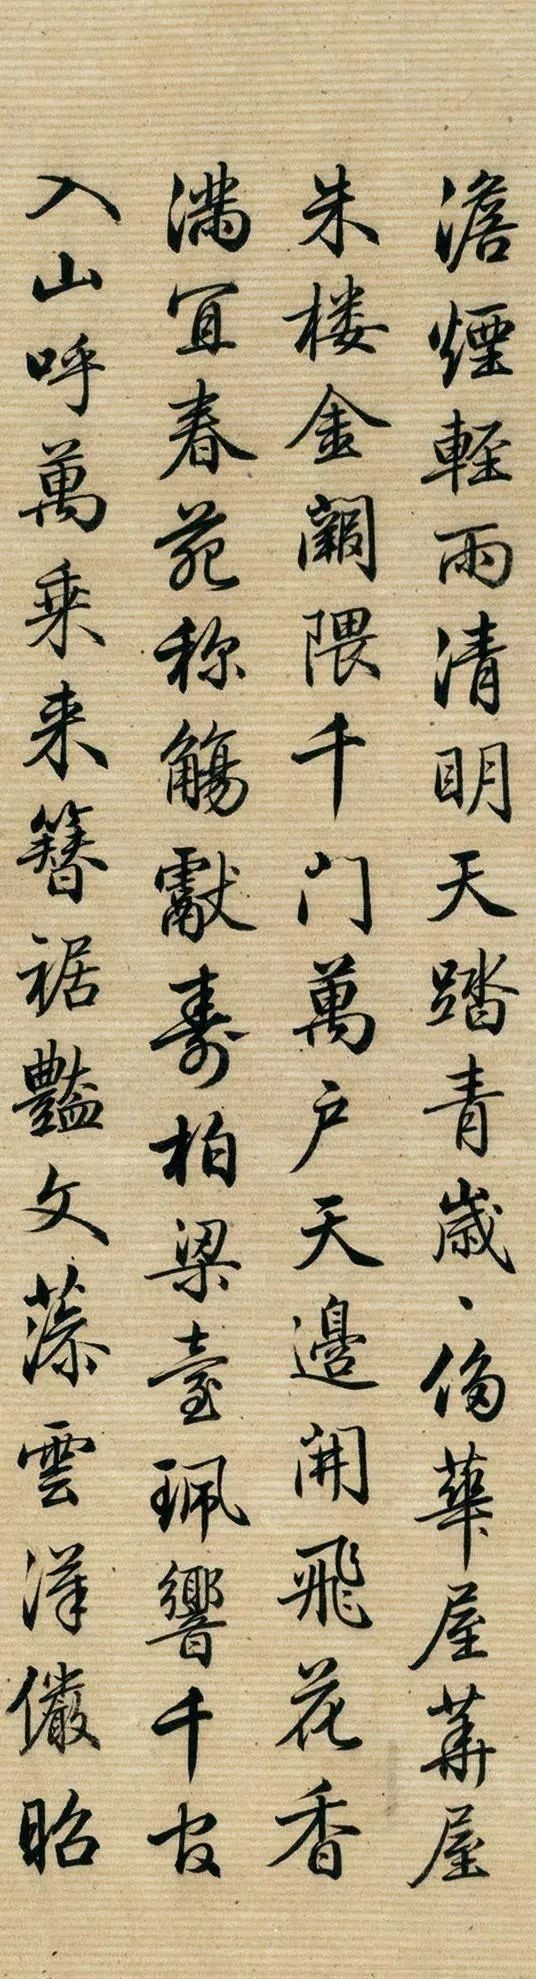 澹煙輕雨清明天踏青歲〻傍華屋華屋
朱楼金闕隈千門萬户天邊開飛花香
滿宜春苑称觴獻壽柏梁臺珮響千官
入山呼萬乘来簪裾豔文藻雲漢儼昭